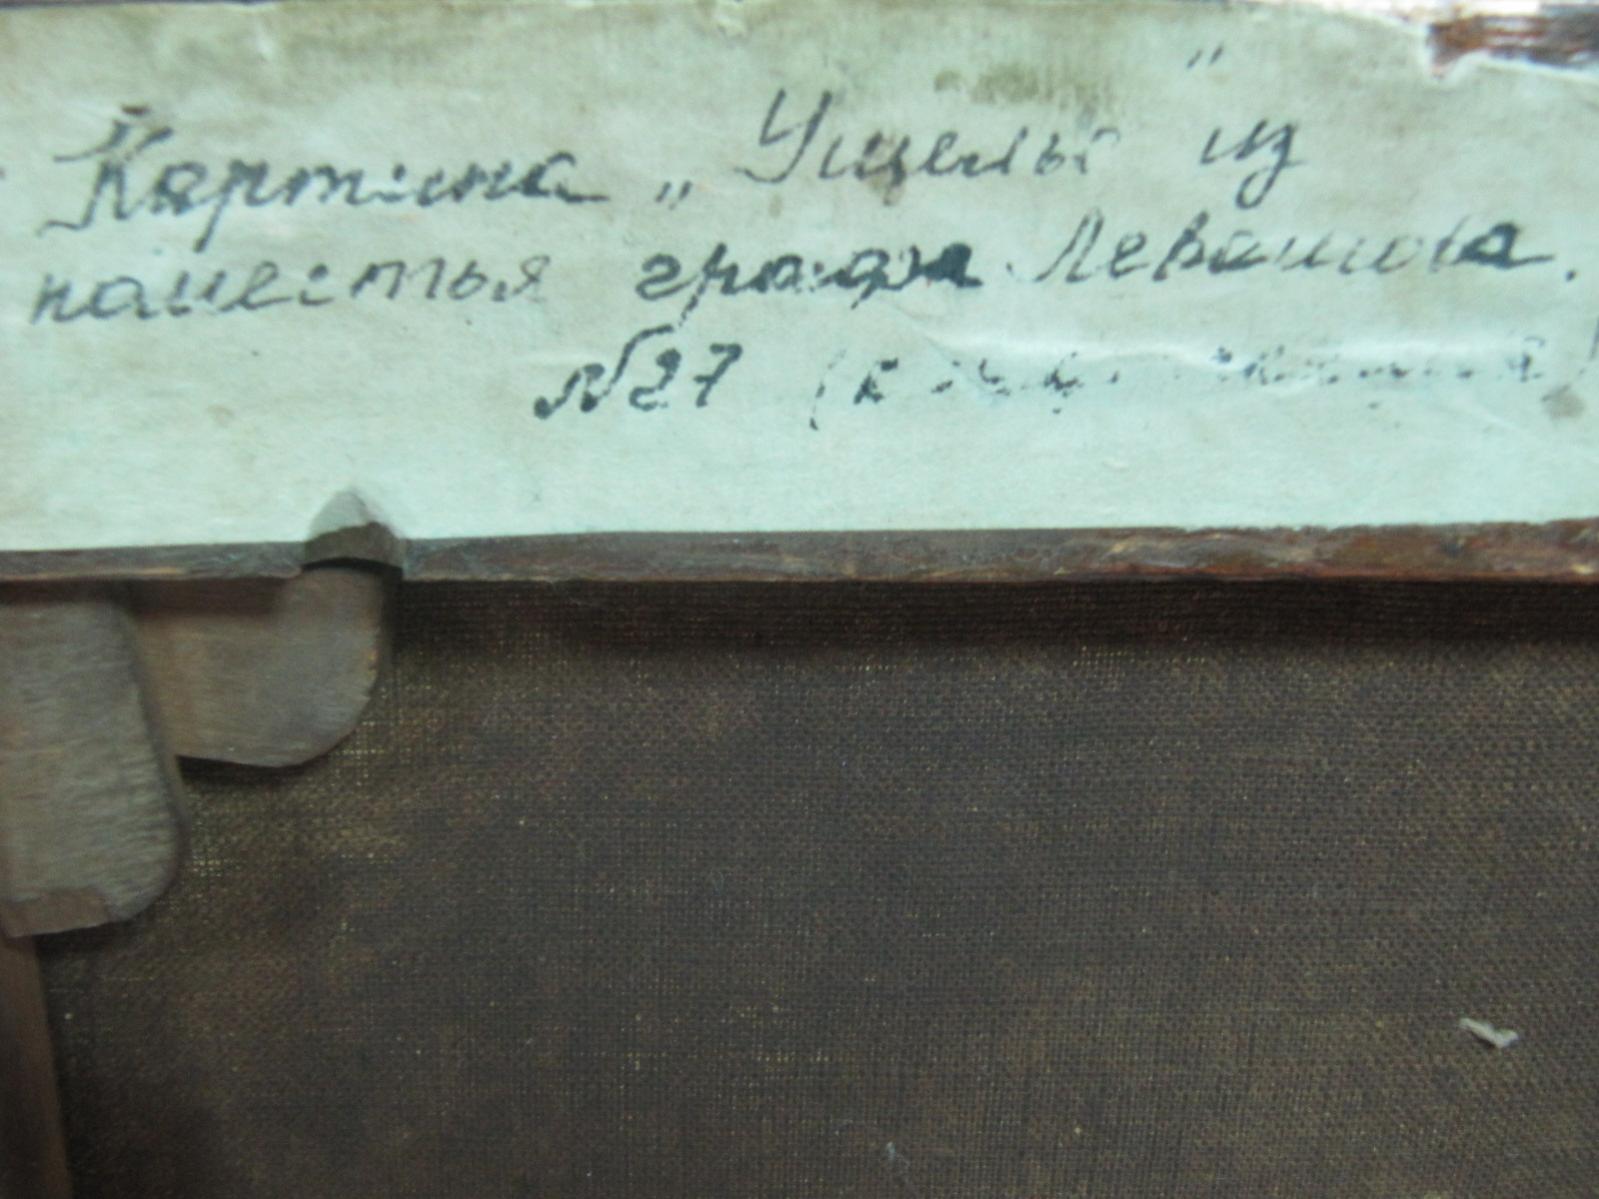 Картина „Ущелье“ из
поместья графа Левашова.
№27 (к